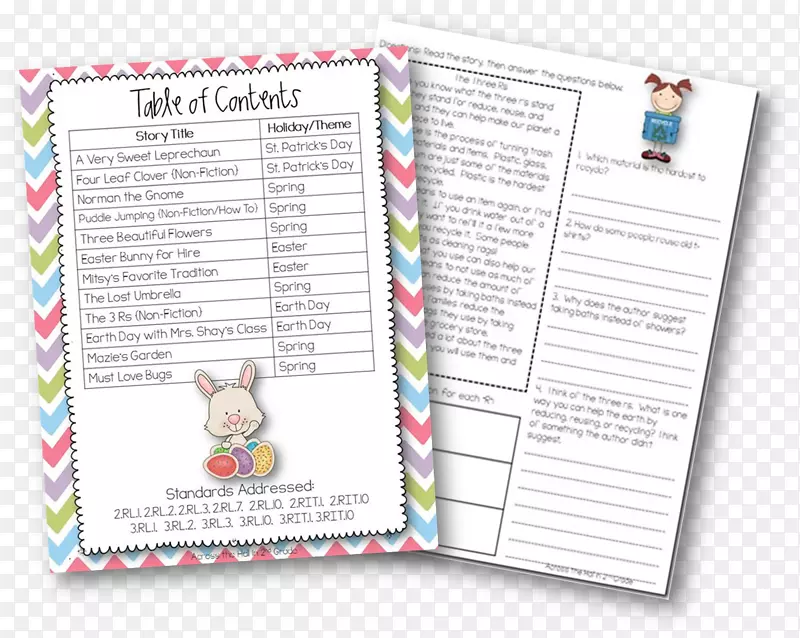 Table of Contents
Story Title Holiday/Theme
A Very Sweet Leprechaun St. Patrick's Day
Four Leaf Clover {Non-Fiction} St. Patrick's Day
Norman the Gnome Spring
Puddle Jumping {Non-Fiction/How To} Spring
Three Beautiful Flowers Spring
Easter Bunny for Hire Easter
Mitsy's Favorite Tradition Easter
The Lost Umbrella Spring
The 3 Rs {Non-Fiction} Earth Day
Earth Day with Mrs. Shay's Class Earth Day
Mazie's Garden Spring
Must Love Bugs Spring
Standards Addressed:
2.RL.1, 2.RL.2, 2.RL.3, 2.RL.7, 2.RL.10, 2.RIT.1, 2.RIT.10
3.RL.1, 3.RL.2, 3.RL.3, 3.RL.10, 3.RIT.1, 3.RIT.10
Across the Hall in 2nd Grade
Directions: Read the story, then answer the questions below.
The Three Rs
you know what the three r's stand
stand for reduce, reuse, and
and they can help make our planet a
to live.
is the process of turning trash
materials and items. Plastic, glass,
are just some of the materials
recycled. Plastic is the hardest
recycle.
means to use an item again, or find
it. If you drink water out of a
want to refill it a few more
you recycle it. Some people
as cleaning rags!
you can also help our
means to not use as much of
can reduce the amount of
by taking baths instead
families reduce the
they use by taking
grocery store.
a lot about the three
you will use them and
for each R:
RECYCLE
1. Which material is the hardest to
recycle?
2. How do some people reuse old t-
shirts?
3. Why does the author suggest
taking baths instead of showers?
4. Think of the three r's. What is one
way you can help the earth by
reducing, reusing, or recycling? Think
of something the author didn't
suggest.
Across the Hall in 2nd Grade